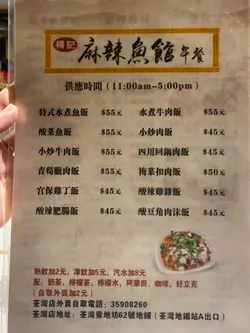 楊記
麻辣魚館午餐
供應時間 (11:00am-5:00pm)
特式水煮魚飯 $55元 水煮牛肉飯 $55元
酸菜魚飯 $55元 小炒肉飯 $45元
小炒牛肉飯 $55元 四川回鍋肉飯 $45元
青蔔臘肉飯 $55元 梅菜扣肉飯 $50元
宮保雞丁飯 $45元 酸辣雞雜飯 $45元
酸辣肥腸飯 $45元 酸豆角肉沫飯 $45元
熱飲加2元, 凍飲加5元, 汽水加8元
配: 奶茶, 檸檬茶, 檸檬水, 阿華田, 咖啡, 好立克
(自取外賣加2元)
荃灣店外賣自取電話: 35908260
荃灣店地址: 荃灣眾安街62號地鋪 (荃灣地鐵站A出口)